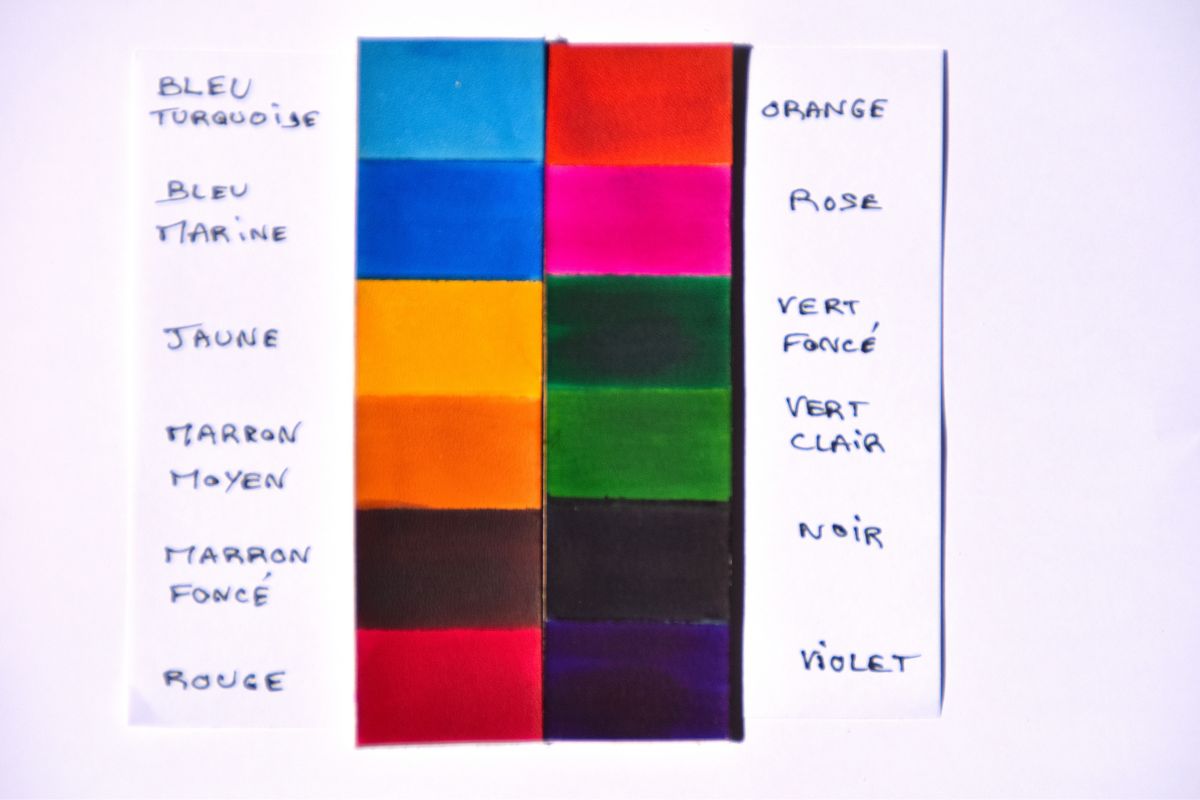 BLEU
TURQUOiSE
BLEU
MARiNE
JAUNE
MARRON
MOYEN
MARRON
FONCÉ
ROUGE
ORANGE
ROSE
VERT
FONCÉ
VERT
CLAiR
NOiR
ViOLET